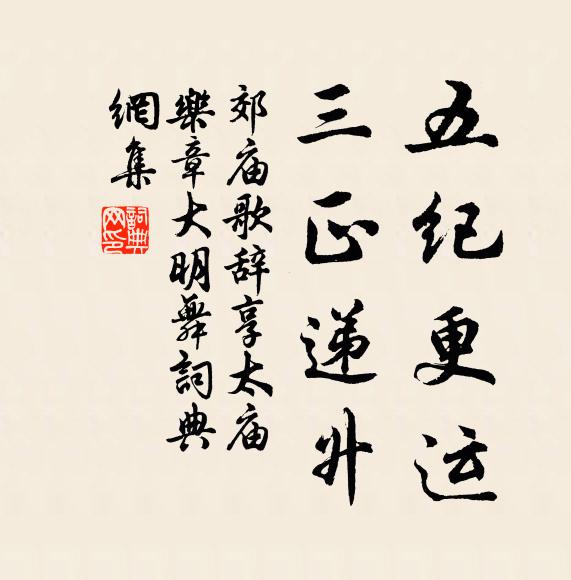 五纪更运
三正递升
郊庙歌辞享太庙
樂章大明舞詞典
網集
詞典网印